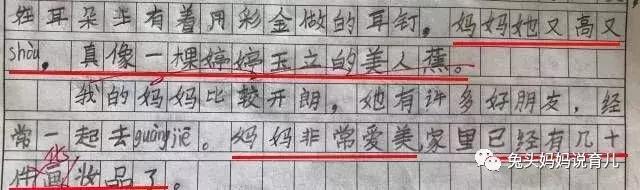 在耳朵上有着用彩金做的耳钉。妈妈她又高又
shòu。真像一棵婷婷玉立的美人蕉。
我的妈妈比较开朗，她有许多好朋友，经
常一起去guàngjiē。妈妈非常爱美家里已经有几十
化
件画妆品了。
兔头妈妈说育儿